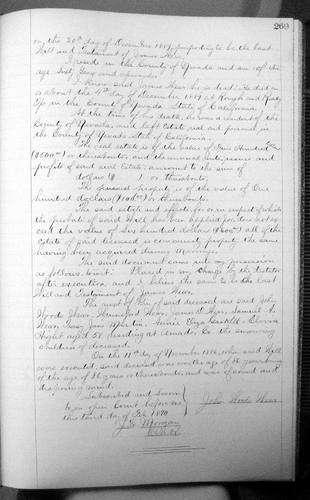 269
on the 20th day of December 1889, purporting to be the Last
Will and Testament of James Hear.
I reside in the County of Nevada and am of the
age Sixty Years and upwards
I knew said James Hear he is dead: He died on
or about the 4th day of December 1889 at Rough and Ready
Tp in the County of Nevada State of California.
At the time of his death, he was a resident of the
County of Nevada and left Estate real and personal in
the County of Nevada State of California.
The real estate is of the value of Five Hundred
($500.00) or thereabouts, and the annual rents, issues and
profits of said real Estate, amount to the sum of
dollars ($ ) or thereabouts.
The personal property is of the value of One
hundred dollars ($100.00) or thereabouts.
The said estate and effects, for or in respect of which
the probate of said Will has been applied for, does not ex-
ceed the value of Six hundred dollars ($600.00) all of the
Estate of said deceased is community property the same
having been acquired during Marriage.
The said document came into my possession
as follows to wit: Placed in my charge by the testator
after execution, and I believe the same to be the Last
Will and Testament of James Hear.
The next of Kin of said deceased are said John
Woods Hear, Hear, James D. Hear, Samuel A.
Hear, Jane Martin, Annie Eliza, Emma
Hight aged 50 residing at Amador Co. the surviving
children of deceased.
On the 11th day of November 1886, when said Will
was executed, said deceased was over the age of 18 years being
of the age of 86 years or thereabouts, and was of sound and
disposing mind.
Subscribed and Sworn
to in open Court before me
this third day of Feb 1890
J. L. Morgan
Clerk
John Woods Hear